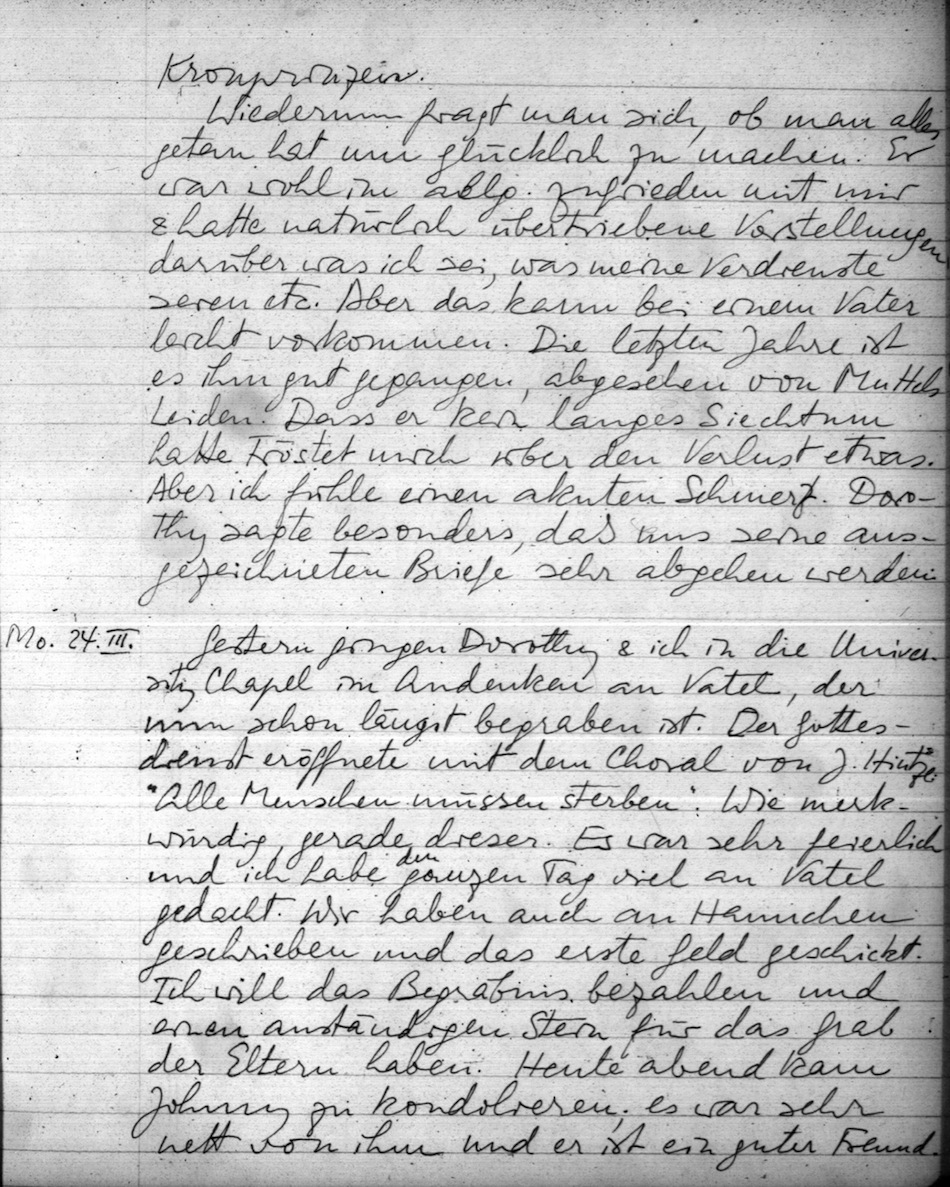 Kronprinzen.
Wiederum fragt man sich, ob man alles
getan hat um glücklich zu machen. Er
war wohl im allg. zufrieden mit mir
& hatte natürlich übertriebene Vorstellungen
darüber was ich sei, was meine Verdienste
seien etc. Aber das kann bei einem Vater
leicht vorkommen. Die letzten Jahre ist
es ihm gut gegangen, abgesehen von Muttels
Leiden. Dass er kein langes Siechtum
hatte tröstet mich über den Verlust etwas.
Aber ich fühle einen akuten Schmerz. Doro-
thy sagte besonders, daß uns seine aus-
gezeichneten Briefe sehr abgehen werden.
Mo. 24. III. Gestern gingen Dorothy & ich in die Univer-
sity Chapel im Andenken an Vatel, der
nun schon längst begraben ist. Der Gottes-
dienst eröffnete mit dem Choral von J. Hintze
"Alle Menschen müssen sterben". Wie merk-
würdig, gerade dieser. Es war sehr feierlich
und ich habe den ganzen Tag viel an Vatel
gedacht. Wir haben auch an Hannchen
geschrieben und das erste Geld geschickt.
Ich will das Begräbnis bezahlen und
einen anständigen Stein für das Grab
der Eltern haben. Heute abend kam
Johnny zu kondolieren; es war sehr
nett von ihm und er ist ein guter Freund.